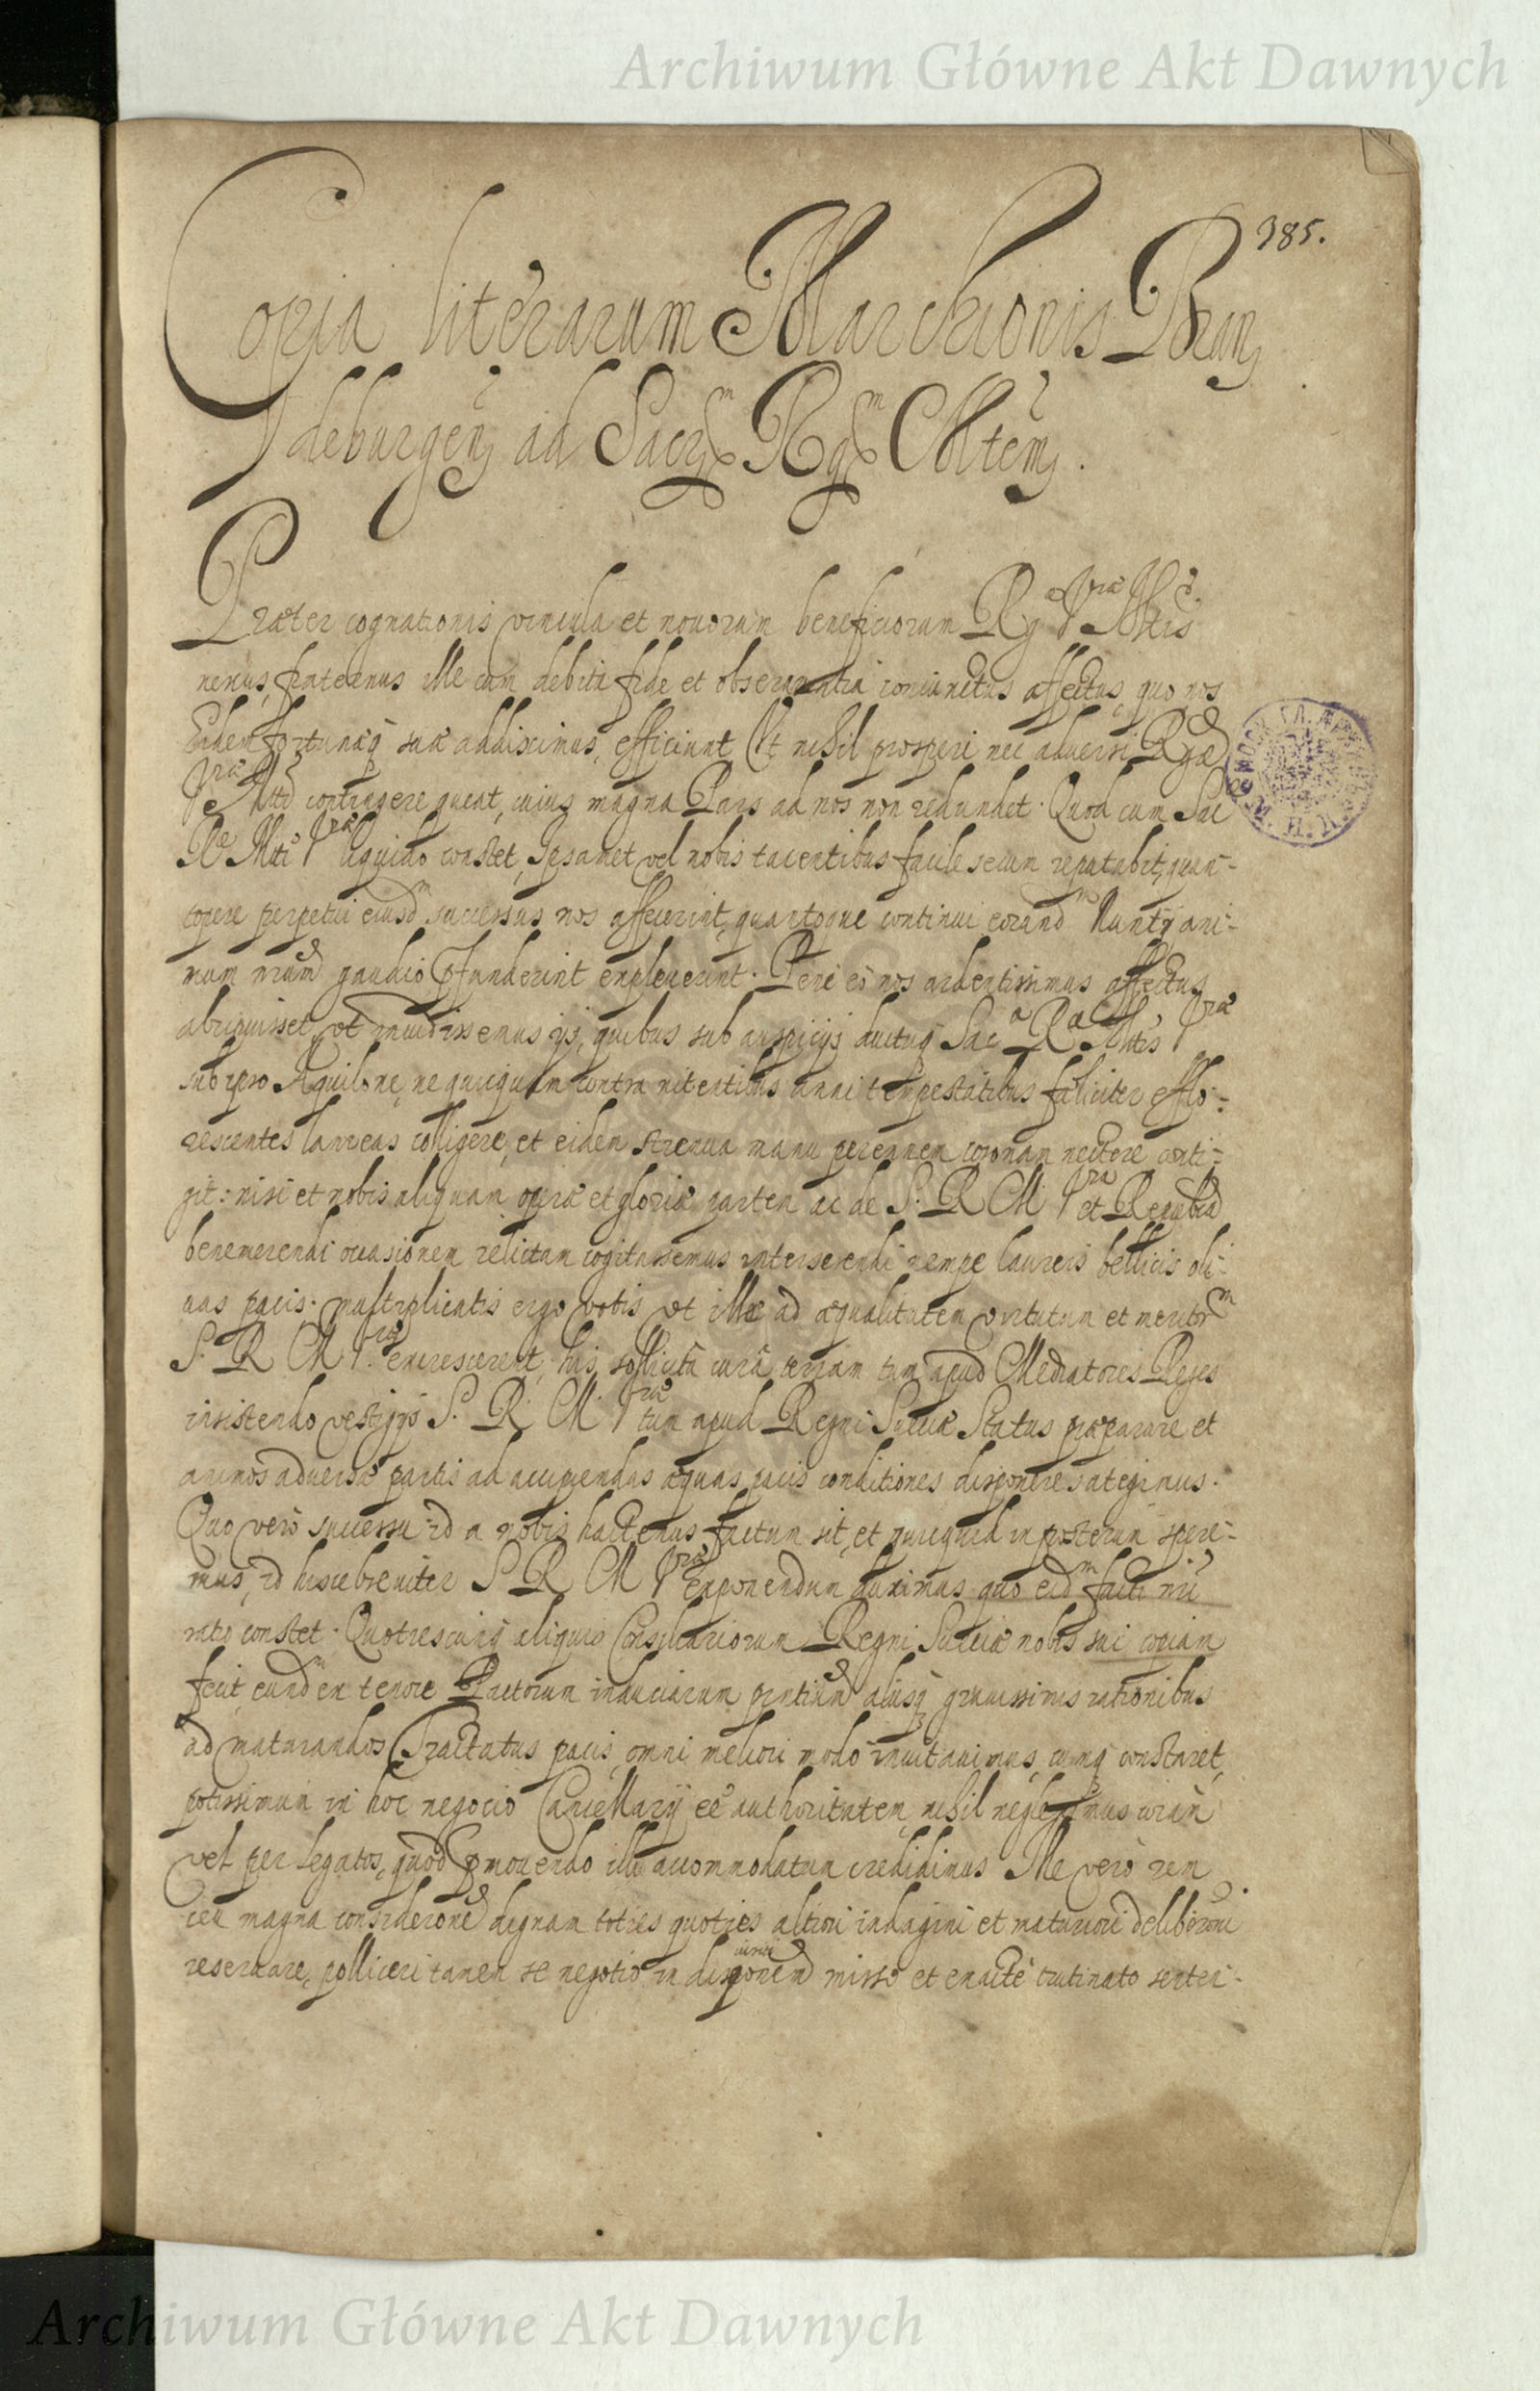 Archiwum Główne Akt Dawnych
385.
Copia literarum Marchionis Bran
deburgen ad Sacr^m Rg^m Mtem.
Præter cognationis vincula et novorum beneficiorum Rg^æ Vræ Mtis
nexus, fraternus ille cum debita fide et observantia coniunctus affectus, quo nos
Eidem fortunæq suæ addiximus, efficiunt Ut nihil prosperi nec adversi Rgæ
Vræ Mtti contingere queat, cuius magna Pars ad nos non redundet. Quod cum Sac
Ræ Mtti Vræ liquido constet, Ipsamet vel nobis tacentibus facile secum reputabit, quan-
topere perpetui eiusd^m successus nos affecerint, quantoque continui eorund^m Nuntÿ ani-
mum nrum gaudio pfunderint expleverint. Pene eo nos ardentissimus affectus
abripuisset, vt invidissemus ijs, quibus sub auspicijs ductuq Sac^a R^a Mtis Vræ
sub ipso Aquilone, nequicquam contra nitentibus anni tempestatibus fæliciter efflo-
rescentes laureas colligere, et eidem strenua manu perennem coronam nectere conti-
git: nisi et nobis aliquam operæ et gloriæ partem ac de S. R M Vra et Repub
benemerendi occasionem relictam cogitassemus interserendi nempe laureis bellicis oli-
uas pacis. multiplicatis ergo votis vt illæ ad æqualitatem virtutum et meritor^m
S. R M Vræ excrescerent, his sollicita cura tum apud Mediatores Reges
insistendo vestigijs S. R. M. Vræ tum apud Regni Sueciæ Status præparare et
animos adversæ partis ad accipiendas æquas pacis conditiones disponere sategimus.
Quo vero successu id a nobis hactenus factum sit, et quicquid in posterum spere-
mus, id hisce breviter S R M Vræ exponendum duximus quo eid^m facti nri
ratio constet. Quotiescunq aliquis Consiliariorum Regni Sueciæ nobis sui copiam
fecit, eund^m ex tenore Pactorum induciarum pntium aliisq gravissimis rationibus
ad maturandos Tractatus pacis omni meliori modo invitavimus, cumq constaret,
potissimum in hoc negocio Cancellarÿ eē authoritatem, nihil negleximus coram
vel per legatos, quod pmovendo illi accommodatum credidimus Ille vero rem
ceu magna considerone dignam toties quoties altiori indagini et maturiori deliberoni
reservare, polliceri tamen se negotio in misso et exacte trutinato senten-
Archiwum Główne Akt Dawnych